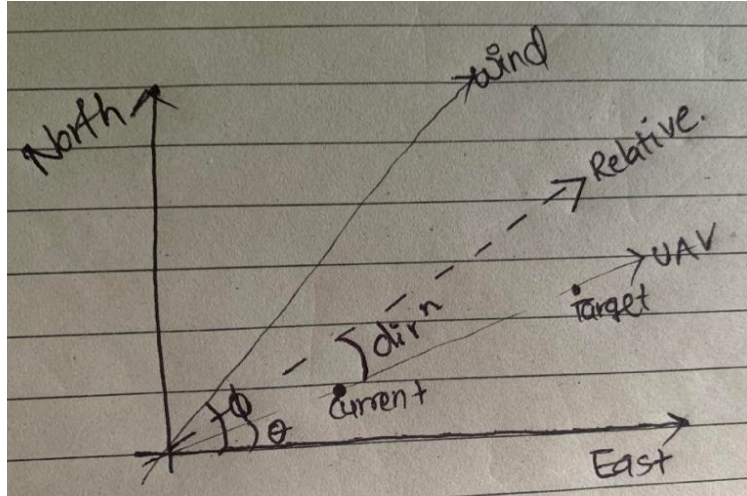 wind
North
Relative.
UAV
Target
dirⁿ
current
ϕ
θ
East